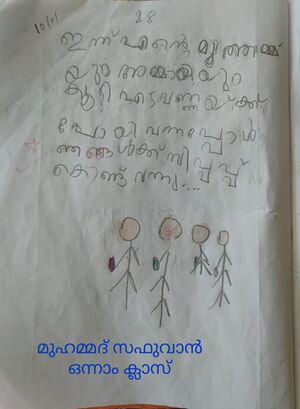 10/01
28
ഇന്ന് എന്റെ മൂത്തമ്മ
യും അമ്മായിയും
കൂടി എടവണ്ണയ്ക്ക്
പോയി വന്നപ്പോൾ
ഞങ്ങൾക്ക് സിപ്പപ്പ്
കൊണ്ട് വന്നു....
മുഹമ്മദ് സഫുവാൻ
ഒന്നാം ക്ലാസ്